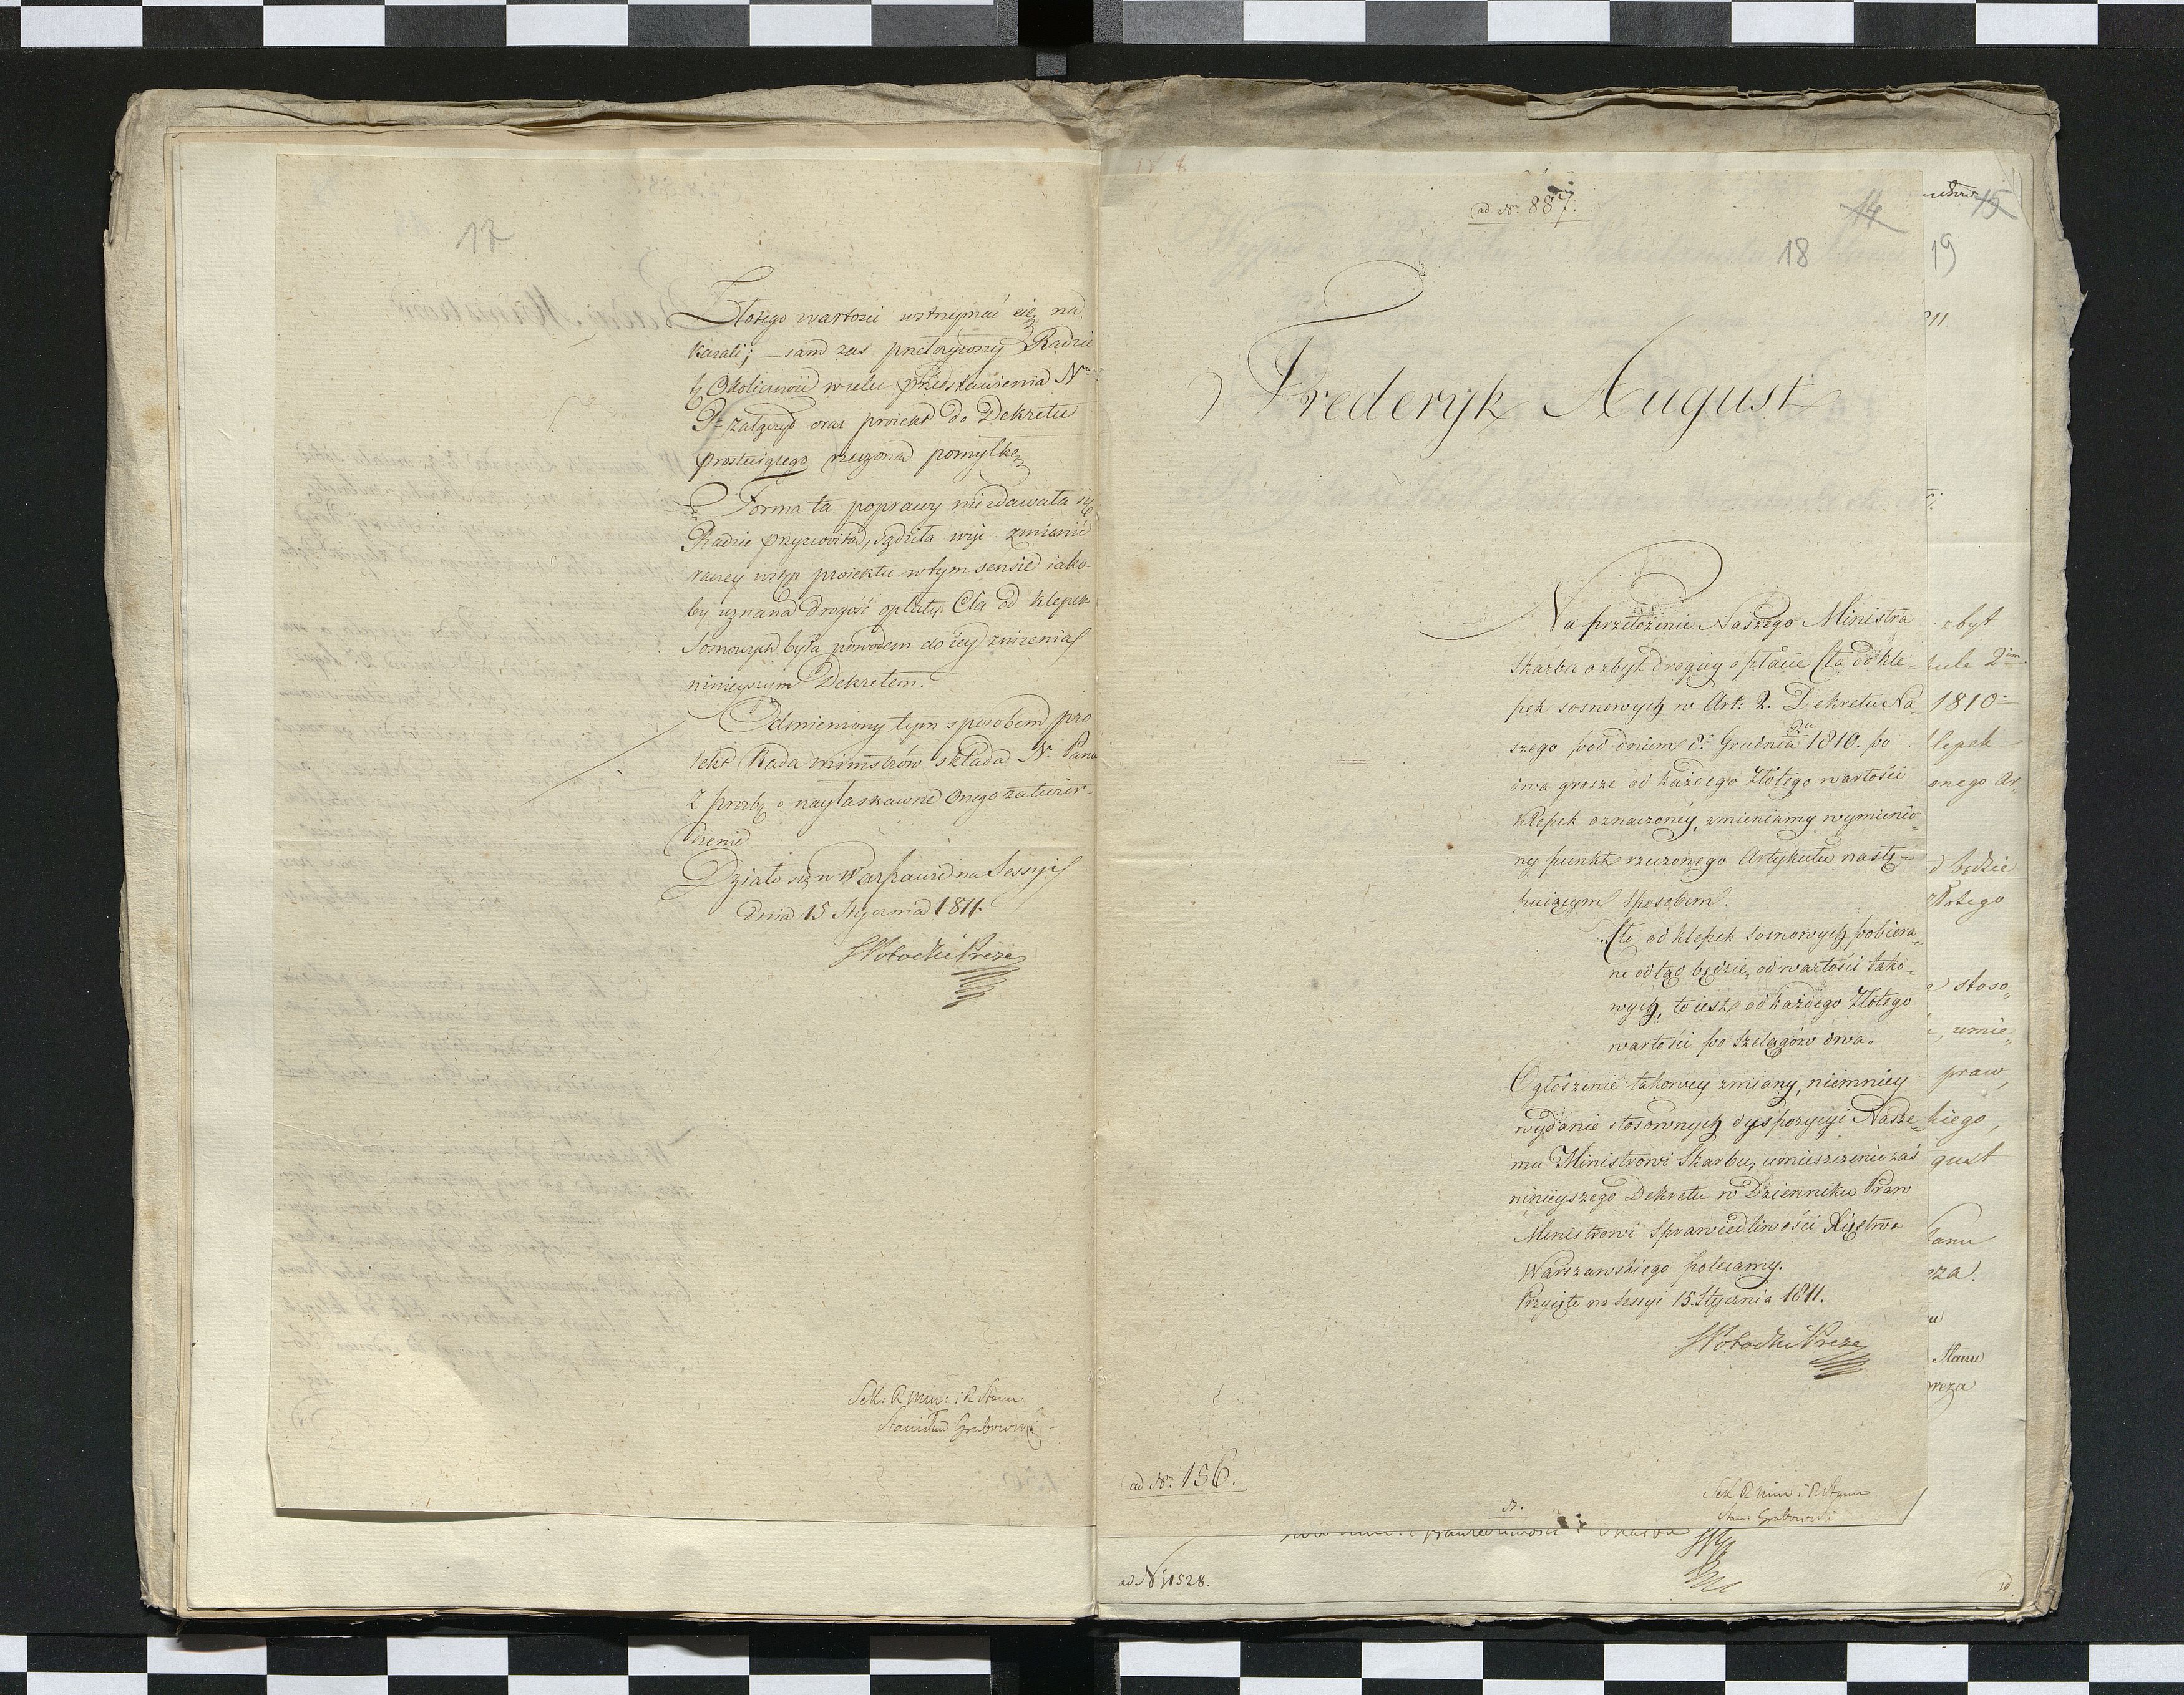 17
Złotego wartości wstrzymać się na,
kazali; – sam zaś przełożywszy Radzie
tę Okoliczność wielu przedstawienia Nro
załączył oraz proiekt do Dekretu
prostuiącego rzeczoną pomyłkę
Forma ta poprawy nie zdawała się
Radzie przyzwoitą, sądziła więc zmienić
raczey wstęp proiektu w tym sensie iako-
by uznana drogość opłaty Cła od klepek
sosnowych była powodem do iey zniżenia
ninieyszym Dekretem.
Odmieniony tym sposobem pro
iekt Rada ministrów składa N. Panu
z prośbą o nayłaskawsze onego zatwier-
dzenie
Działo się w Warszawie na Sessyi
dnia 15 Stycznia 1811.
S Potocki Preze
Sek: R Min: i R Stanu
Stanisław Grabowski
ad Nr. 887.
14
18
Frederyk August
Na przełożenie Naszego Ministra
Skarbu o zbyt drogiey opłacie Cła od kle-
pek sosnowych w Art: 2. Dekretu Na-
szego pod dniem 8. Grudnia 1810. po
dwa grosze od każdego złotego wartości
klepek oznaczoney, zmieniamy wymienio-
ny punkt rzeczonego Artykułu nastę-
puiącym sposobem.
Cło od klepek sosnowych pobiera-
ne odtąd będzie, od wartości tako-
wych, to iest od każdego Złotego
wartości po szelągów dwa.
Ogłoszenie takowey zmiany, niemniey
wydanie stosownych dyspozycyi Nasze-
mu Ministrowi Skarbu, umieszczenie zaś
ninieyszego Dekretu w Dzienniku Praw
Ministrowi Sprawiedliwości Xięstwa
Warszawskiego polecamy.
Przyięto na Sessyi 15 Stycznia 1811.
S Potocki Preze
ad Nr. 156.
Sek R Min i R Stanu
Stan: Grabowski
15
19
zbyt
kule 2im.
1810
klepek
onego Ar,
d będzie
złotego
stoso,,
, umie,,
praw,
kiego,
gust
Stanu
ad N 1528.